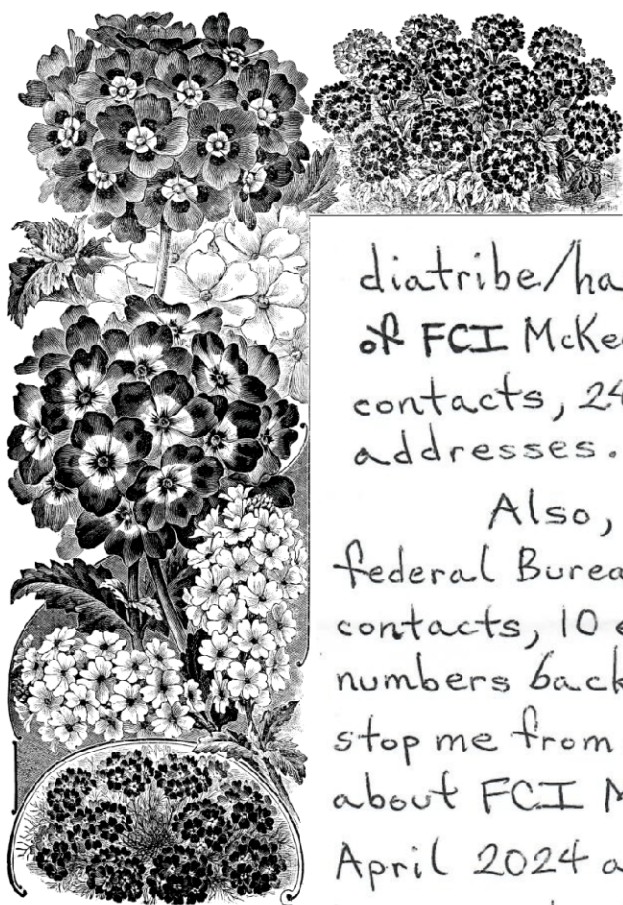 diatribe/ha
of FCI McKe
contacts, 24
addresses.
Also,
federal Burea
contacts, 10 e
numbers back
stop me from
about FCI M
April 2024 a